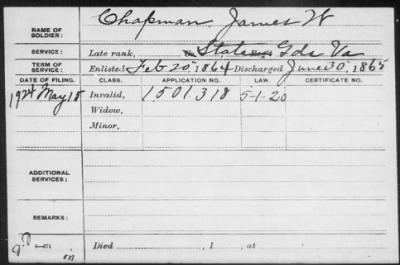 NAME OF SOLDIER: Chapman, James W
SERVICE: Late rank, State Gds Va
TERM OF SERVICE: Enlisted Feb 20, 1864 Discharged June 30, 1865
DATE OF FILING. CLASS. APPLICATION NO. LAW. CERTIFICATE NO.
1924 May 15 Invalid, 1501318 5-1-20
Widow,
Minor,
ADDITIONAL SERVICES:
REMARKS:
Died , 1 , at